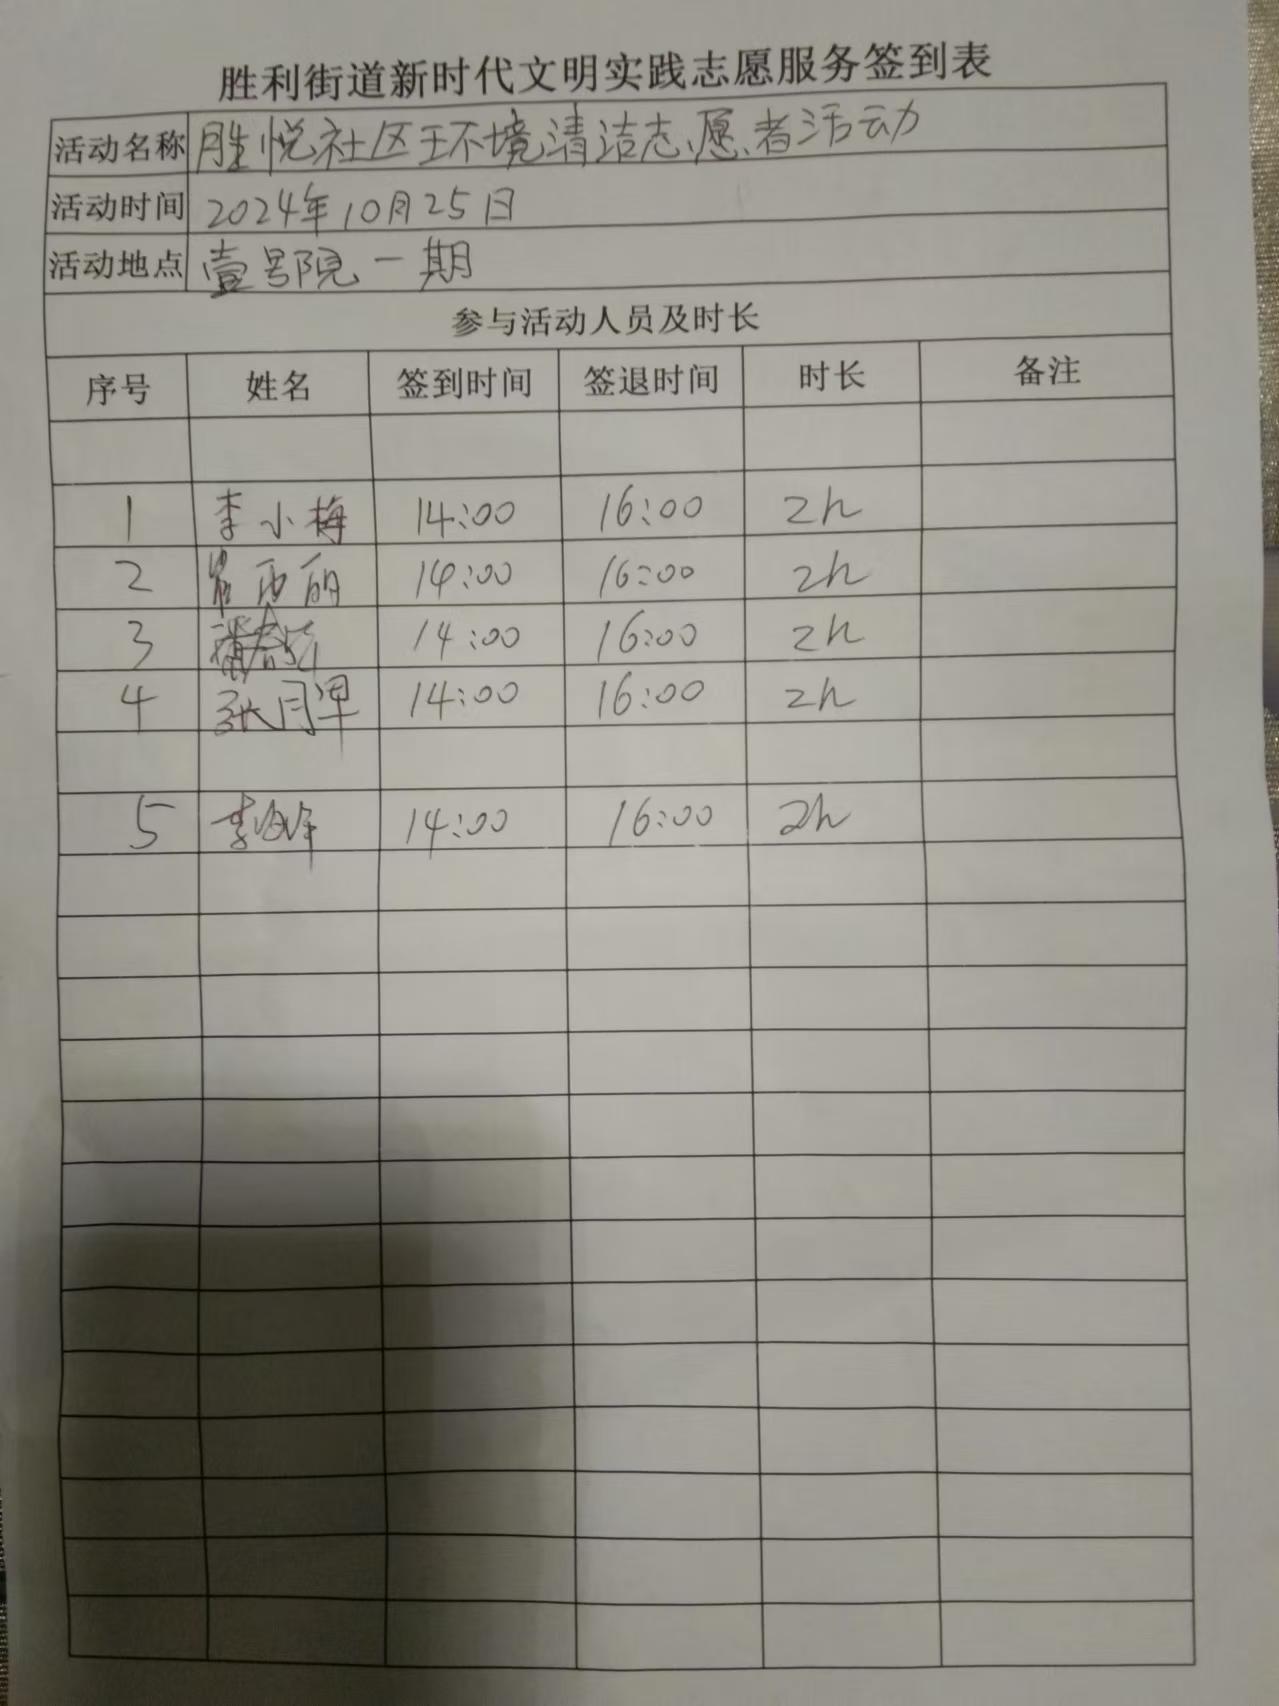 胜利街道新时代文明实践志愿服务签到表
活动名称 胜悦社区环境清洁志愿者活动
活动时间 2024年10月25日
活动地点 壹号院一期
参与活动人员及时长
序号 姓名 签到时间 签退时间 时长 备注
1 李小梅 14:00 16:00 2h
2 14:00 16:00 2h
3 14:00 16:00 2h
4 张月 14:00 16:00 2h
5 李海 14:00 16:00 2h